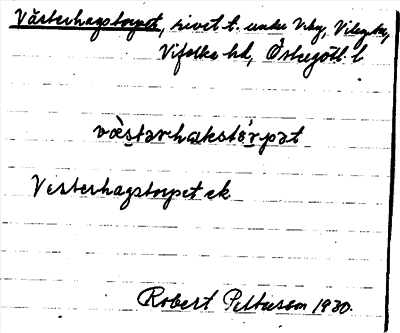 Västerhagstorpet, rivet t. under Viby, Viby sn,
Vifolka hd, Östergötl. l
væ̀stərhakstórpət
Vesterhagstorpet ek
Robert Pettersson 1930.